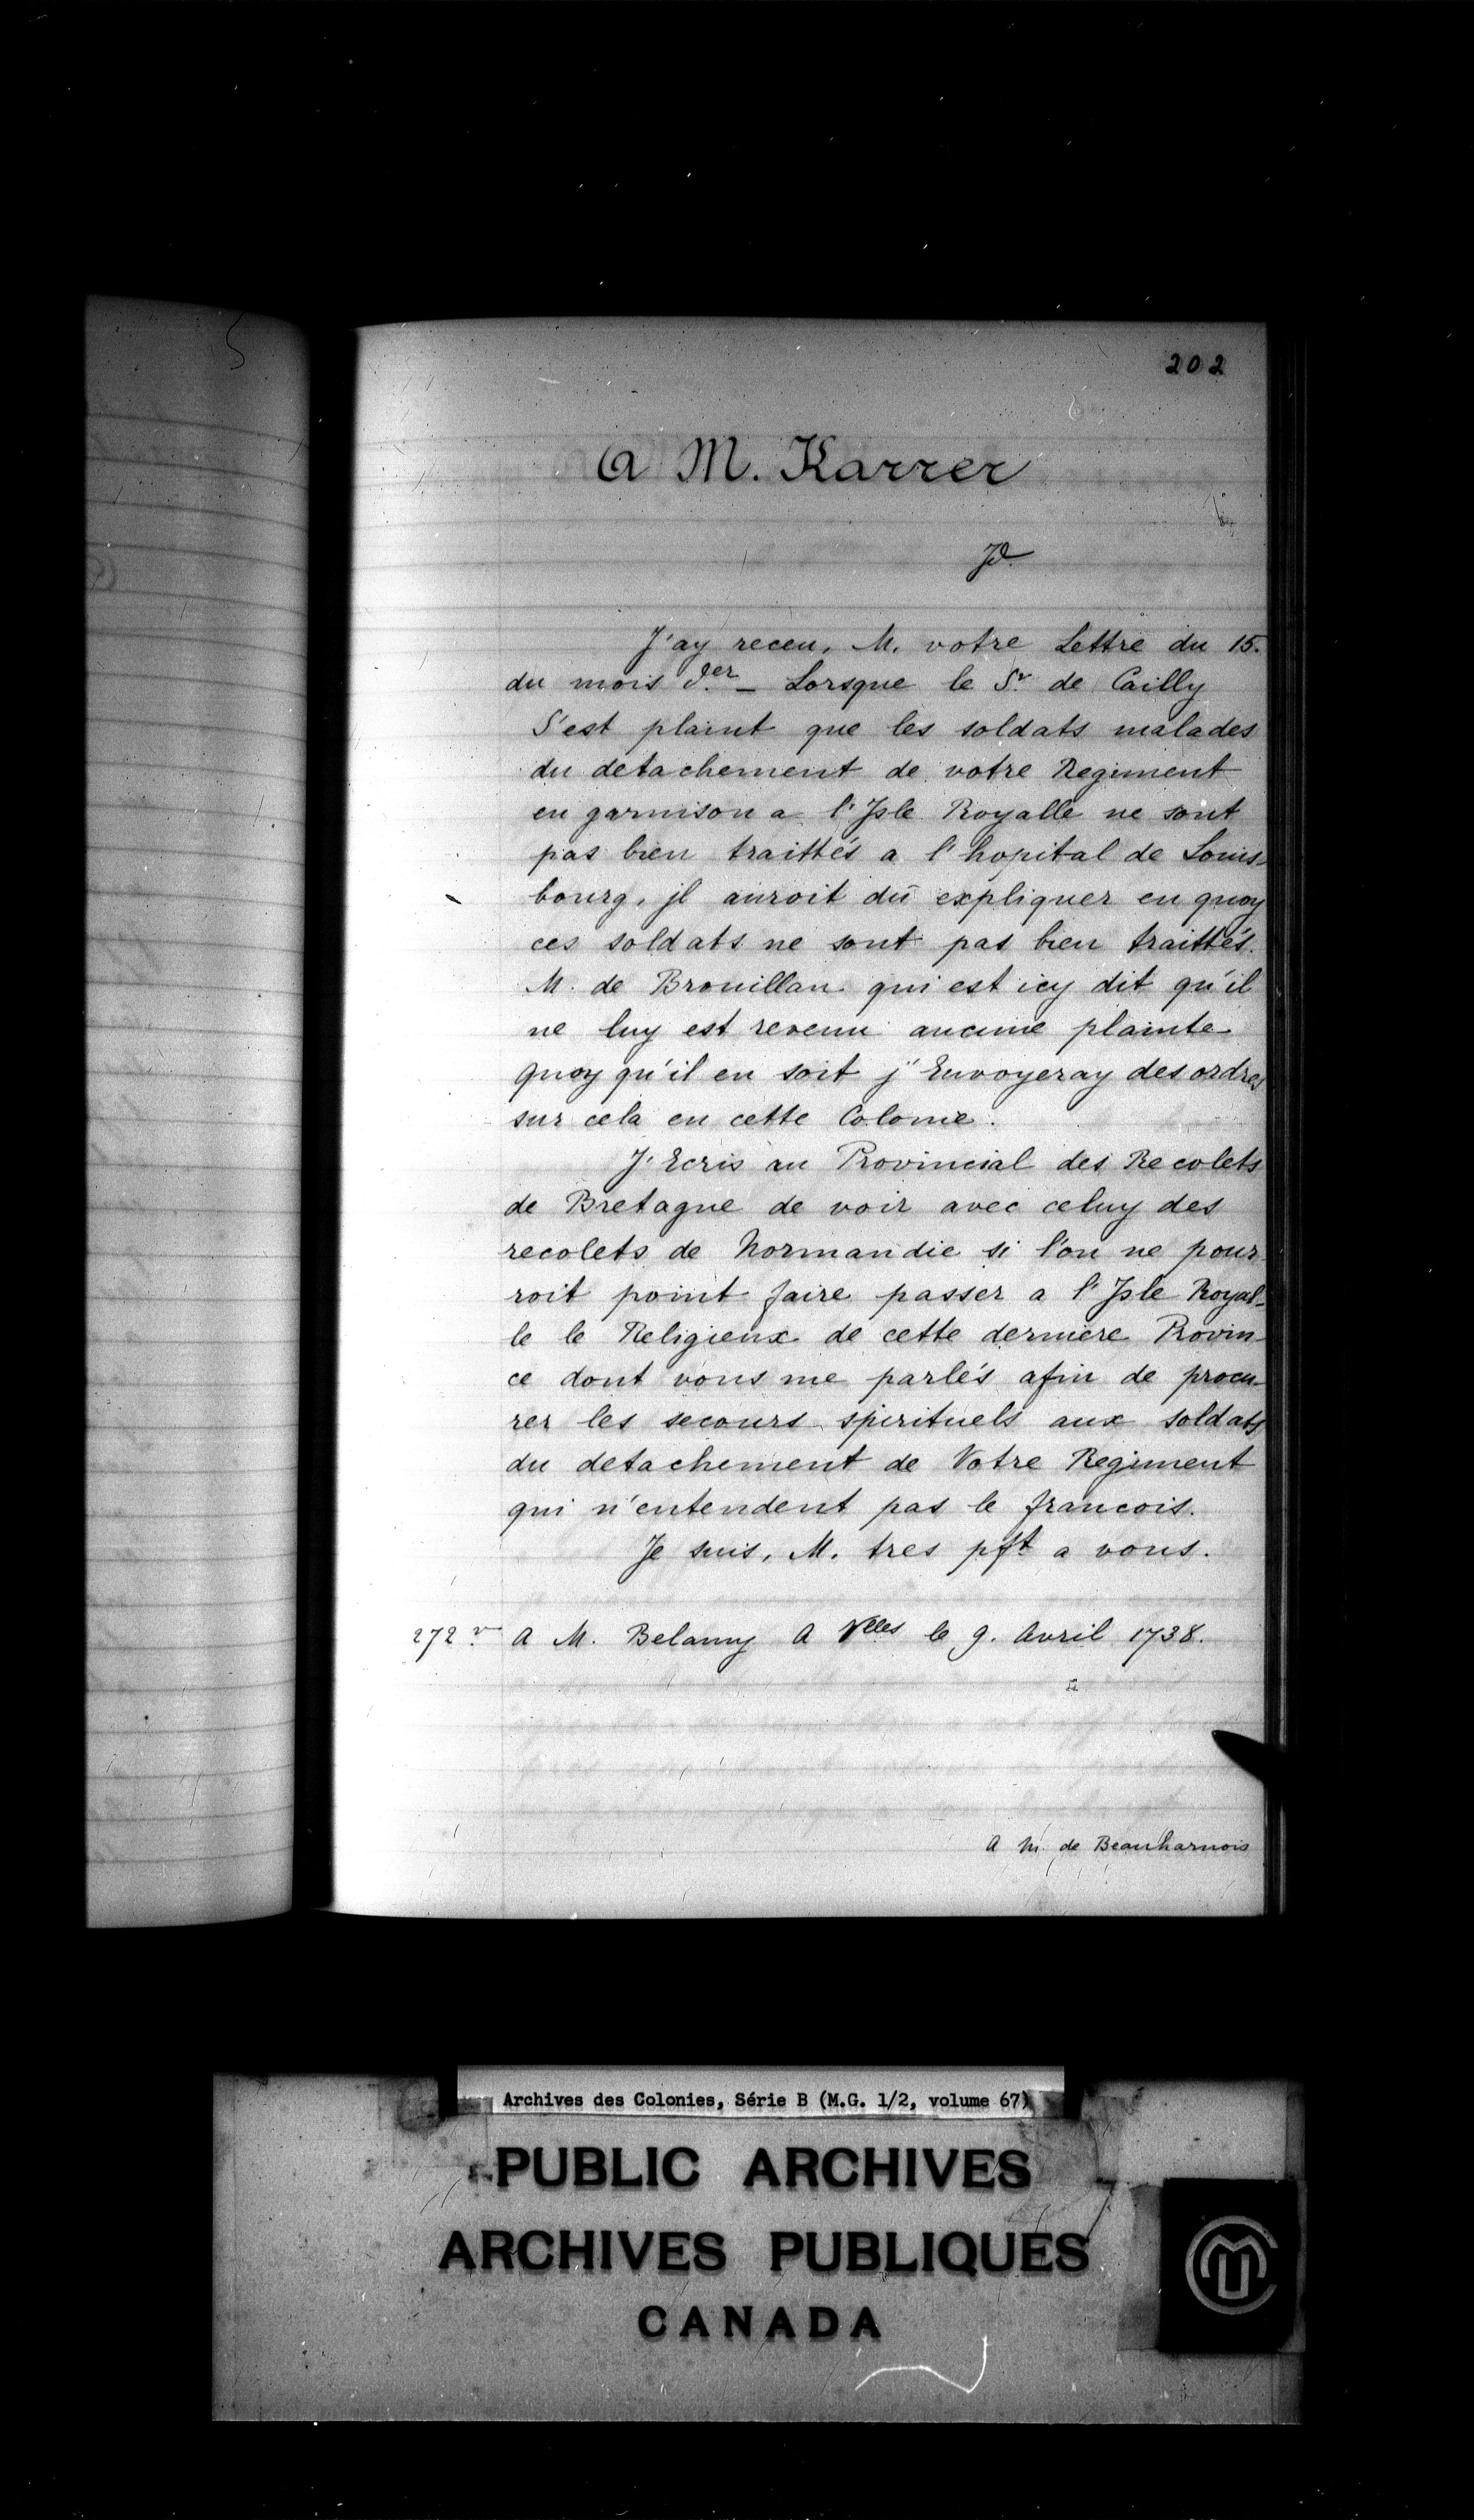 202
A M. Karrer
Jd.
J'ay receu, M. votre Lettre du 15.
du mois d.er _ Lorsque le Sr. de Cailly
S'est plaint que les soldats malades
du detachement de votre Regiment
en garnison a l'Isle Royalle ne sont
pas bien traittés a l'hopital de Louis-
bourg, jl auroit dû expliquer en quoy
ces soldats ne sont pas bien traittés.
M. de Brouillan qui est icy dit qu'il
ne luy est revenu aucune plainte
quoy qu'il en soit j'Envoyeray des ordres
sur cela en cette Colonie.
J'Ecris au Provincial des Recolets
de Bretagne de voir avec celuy des
recolets de Normandie si l'on ne pour-
roit point faire passer a l'Isle Royal-
le le Religieux de cette derniere Provin-
ce dont vous me parlés afin de procu-
rer les secours spirituels aux soldats
du detachement de Votre Regiment
qui n'entendent pas le francois.
Je suis, M. tres pft a vous.
272 v. A M. Belamy A Vlles le 9. Avril 1738.
A M. de Beauharnois
Archives des Colonies, Série B (M.G. 1/2, volume 67)
PUBLIC ARCHIVES
ARCHIVES PUBLIQUES
CANADA